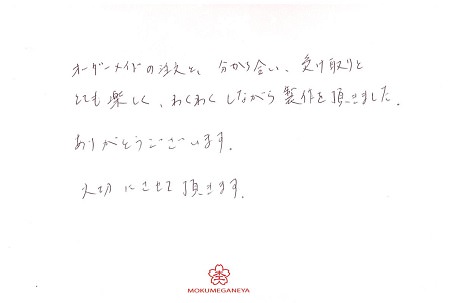 オーダーメイドの注文と、分かち合い、受け取りと
とても楽しく、わくわくしながら製作を頂きました。
ありがとうございます。
大切にさせて頂きます。
MOKUMEGANEYA